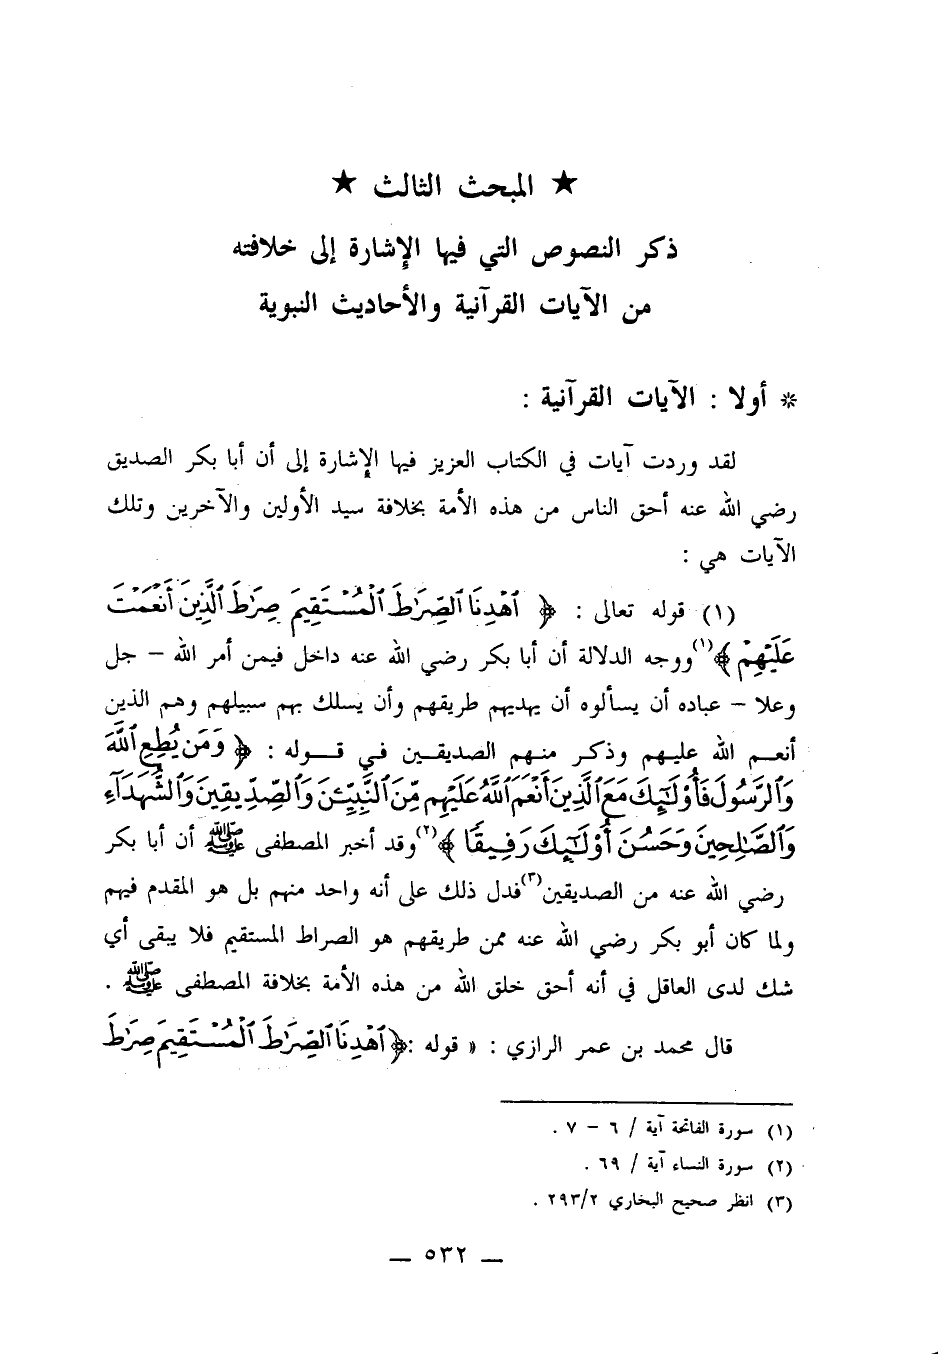 ★ المبحث الثالث ★
ذكر النصوص التي فيها الإشارة إلى خلافته
من الآيات القرآنية والأحاديث النبوية
* أولا : الآيات القرآنية :
لقد وردت آيات في الكتاب العزيز فيها الإشارة إلى أن أبا بكر الصديق
رضي الله عنه أحق الناس من هذه الأمة بخلافة سيد الأولين والآخرين وتلك
الآيات هي :
(١) قوله تعالى : ﴿ ٱهْدِنَا ٱلصِّرَٰطَ ٱلْمُسْتَقِيمَ صِرَٰطَ ٱلَّذِينَ أَنْعَمْتَ
عَلَيْهِمْ ﴾(١) ووجه الدلالة أن أبا بكر رضي الله عنه داخل فيمن أمر الله – جل
وعلا – عباده أن يسألوه أن يهديهم طريقهم وأن يسلك بهم سبيلهم وهم الذين
أنعم الله عليهم وذكر منهم الصديقين في قوله : ﴿ وَمَن يُطِعِ ٱللَّهَ
وَٱلرَّسُولَ فَأُوْلَٰٓئِكَ مَعَ ٱلَّذِينَ أَنْعَمَ ٱللَّهُ عَلَيْهِم مِّنَ ٱلنَّبِيِّـۧنَ وَٱلصِّدِّيقِينَ وَٱلشُّهَدَآءِ
وَٱلصَّٰلِحِينَ وَحَسُنَ أُوْلَٰٓئِكَ رَفِيقًا ﴾(٢) وقد أخبر المصطفى ﷺ أن أبا بكر
رضي الله عنه من الصديقين(٣) فدل ذلك على أنه واحد منهم بل هو المقدم فيهم
ولما كان أبو بكر رضي الله عنه ممن طريقهم هو الصراط المستقيم فلا يبقى أي
شك لدى العاقل في أنه أحق خلق الله من هذه الأمة بخلافة المصطفى ﷺ .
قال محمد بن عمر الرازي : « قوله : ﴿ ٱهْدِنَا ٱلصِّرَٰطَ ٱلْمُسْتَقِيمَ صِرَٰطَ
(١) سورة الفاتحة آية / ٦ – ٧ .
(٢) سورة النساء آية / ٦٩ .
(٣) انظر صحيح البخاري ٢٩٣/٢ .
— ٥٣٢ —